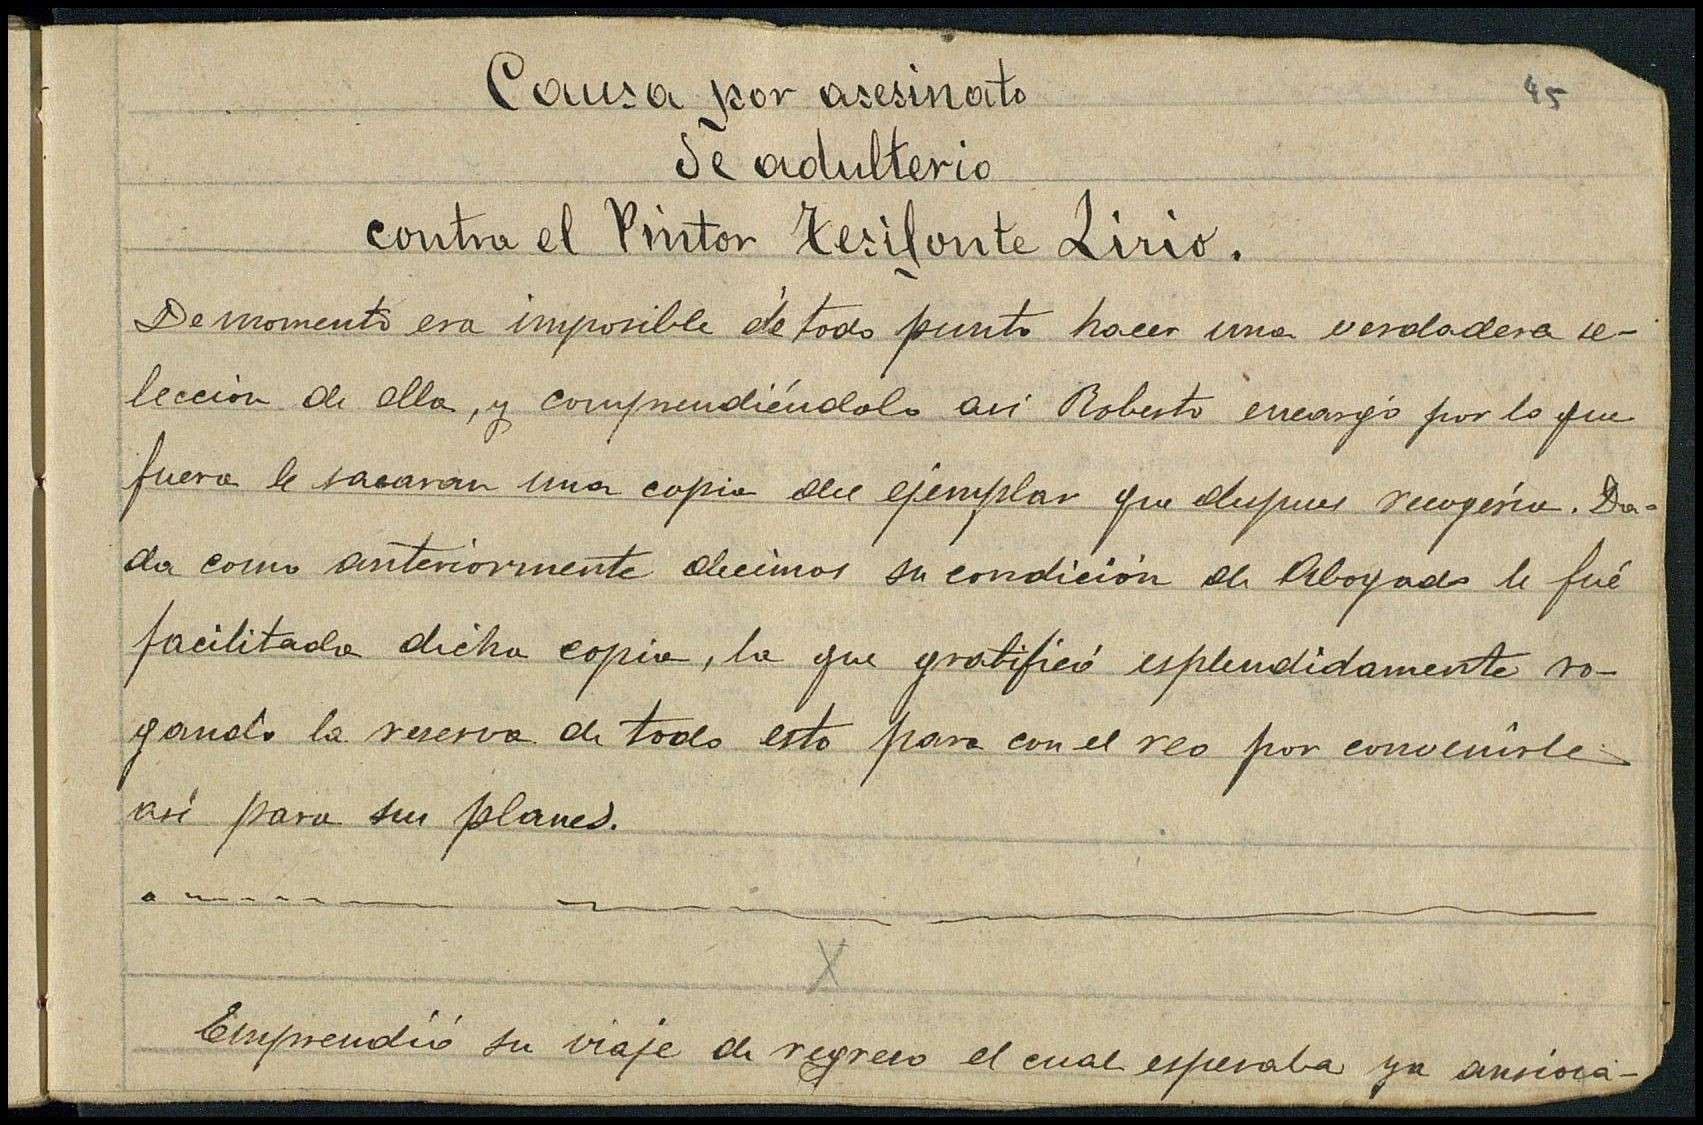 45
Causa por asesinato
de adulterio
contra el Pintor Tesifonte Lirio.
De momento era imposible de todo punto hacer una verdadera se-
lección de ella, y comprendiéndolo asi Roberto encargó por lo que
fuera le sacaran una copia del ejemplar que despues recogería. Da-
da como anteriormente decimos su condición de Abogado le fué
facilitada dicha copia, la que gratificó esplendidamente ro-
gando la reserva de todo esto para con el reo por convenirle
asi para sus planes.
X
Emprendió su viaje de regreso el cual esperaba ya ansiosa-